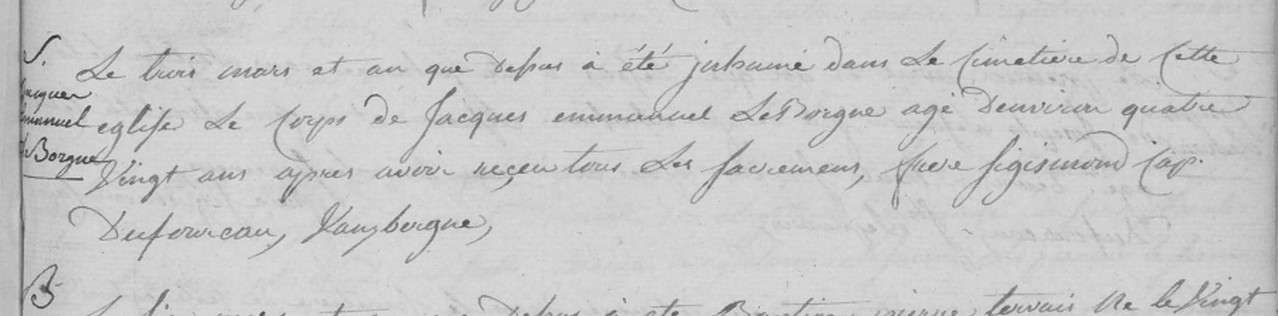 S.
Jacques
Emmanuel
Le Borgne
Le trois mars et an que Depus à été inhumé dans Le Cimetiere de Cette
eglise Le Corps de Jacques emmanuel LeBorgne agé D'environ quatre
Vingt ans apres avoir reçeu tous Les sacremens, frere sigismond Cap.
Dufourcau, Vauzbergue,
B
mars et Depus à eté né le Vingt